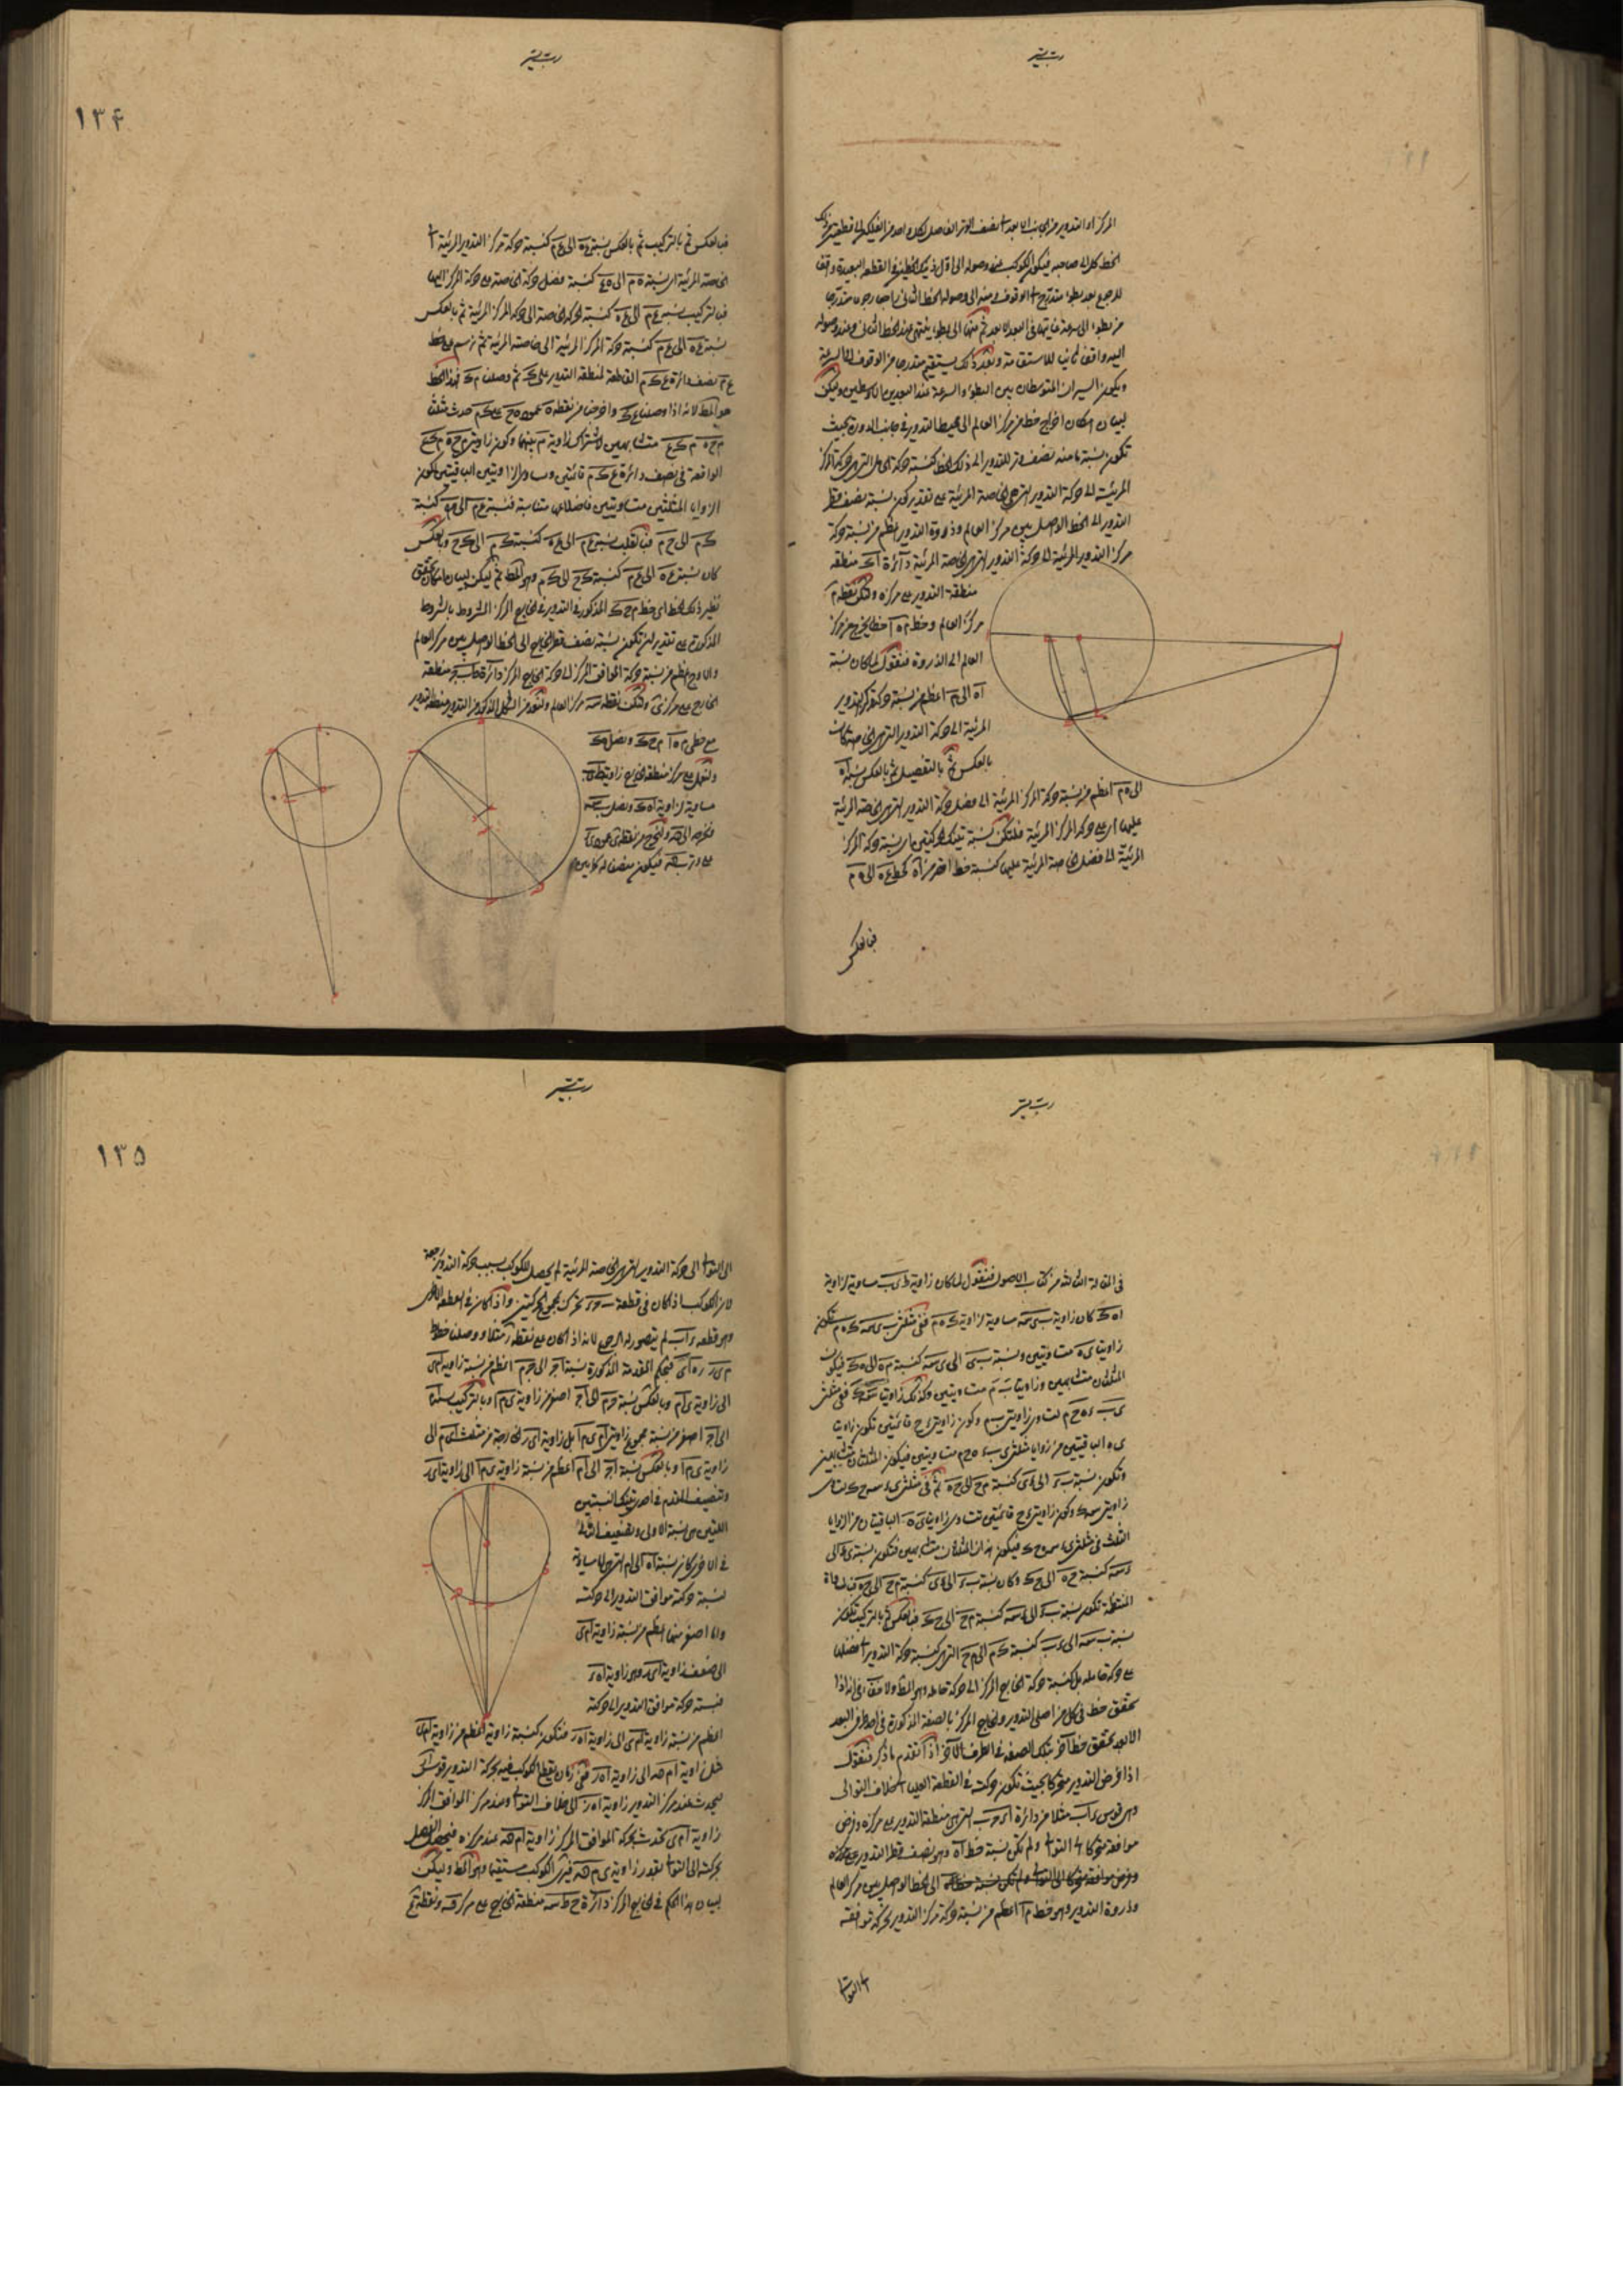 المركز او التدوير من الجانب الابعد نصف الوتر الفاصل لكل واحد من الفلكين الى قطعتين
الخط كل الى صاحبه فيكون الكوكب عند وصوله الى اول ذينك الخطين في القطعة البعيدة واقفا
للرجوع بعد بطوء متدرج الى الوقوف ومنه الى وصوله الخط الثاني راجعا رجوعا متدرجا
من بطوء الى سرعة غايتها في البعد الابعد ثم منها الى بطوء ينتهي عند الخط الثاني وعند وصوله
اليه واقف ثانيا للاستقامة وبعد ذلك يستقيم متدرجا من الوقوف الى السرعة
ويكون السيران المتوسطان بين البطوء والسرعة عند البعدين الاوسطين وليكن
لبيان امكان اخراج خط من مركز العالم الى محيط التدوير في جانب الدورة بحيث
تكون نسبة ما منه نصف وتر للتدوير الى ذلك الخط كنسبة حركة الحامل التي هي حركة المركز
المرئية الى حركة التدوير التي هي الخاصة المرئية على تقدير كون نسبة نصف قطر
التدوير الى الخط الواصل بين مركز العالم وذروة التدوير اعظم من نسبة حركة
مركز التدوير المرئية الى حركة التدوير التي هي الخاصة المرئية دائرة اك منطقة
منطقة التدوير على مركز ه ولتكن نقطة م
مركز العالم وخط م ه آ خطا يخرج من مركز
العالم الى الذروة فنقول لما كان نسبة
آه الى آم اعظم من نسبة حركة مركز التدوير
المرئية الى حركة التدوير التي هي الخاصة كان
بالعكس ثم بالتفصيل ثم بالعكس نسبة آه
الى ه م اعظم من نسبة حركة المركز المرئية الى فضل حركة التدوير التي هي الخاصة المرئية
عليها اي على حركة المركز المرئية فلتكن نسبة تينك الحركتين اي نسبة حركة المركز
المرئية الى فضل الخاصة المرئية عليها كنسبة خط اقصر من آه كخط ع ه الى ه م
فبالعكس
١٣۴
فبالعكس ثم بالتركيب ثم بالعكس نسبة ع ه الى ع م كنسبة حركة مركز التدوير المرئية الى
الخاصة المرئية اي نسبة ه م الى ه ع كنسبة فضل حركة الخاصة على حركة المركز اليها
فبالتركيب نسبة ع م الى ع ه كنسبة الحركة الخاصة الى حركة المركز المرئية ثم بالعكس
نسبة ع ه الى ع م كنسبة حركة المركز المرئية الى الخاصة المرئية ثم نرسم على خط
ع م نصف دائرة ع ك م القاطعة لمنطقة التدوير على ك ثم وصلنا م ك فهذا الخط
هو الخط لانه اذا وصلنا ع ك واخرجنا من نقطة ه عمود ه ح على ك م حدث مثلثا
م ح ه م ك ع متشابهين لاشتراك زاوية م بينهما وكون زاويتي م ح ه م ك ع
الواقعة في نصف دائرة ع ك م قائمتين وتساوي الزاويتين الباقيتين لكون
الزوايا المثلثين متساويتين فاضلاعها متناسبة فنسبة ع م الى م ه كنسبة
ك م الى ح م فبالقلب نسبة ع م الى ع ه كنسبة ك م الى ك ح وبالعكس
كان نسبة ع ه الى ع م كنسبة ك ح الى ك م وهو الخط ثم ليكن لبيان امكان تحقق
نظير ذلك الخط اي خط م ح ك المذكور في التدوير في الخارج المركز المشروط بالشروط
المذكورة على تقدير ان تكون نسبة نصف قطر الخارج الى الخط الواصل بين مركز العالم
والاوج اعظم من نسبة حركة الموافق المركز الى حركة الخارج المركز دائرة منطقة
الخارج على مركز ى ولتكن نقطة سه مركز العالم ولنعد من الشكل المذكور من التدوير منطقة التدوير
مع خطي م ه آ م ح ك ونصل ه ك
ولنعمل على مركز منطقة الخارج زاوية ط ى ب
مساوية لزاوية ا ه ك ونصل ب سه
فنخرجه الى ه ولنخرج من نقطة ى عمود ى ء
على وتر ب ه فيكون منصفا له كما تبين
في المقالة الثالثة من كتاب الاصول فنقول لما كان زاوية ط ى ب مساوية لزاوية
ا ه ك كان زاوية ب ى سه مساوية لزاوية ك ه م ففي مثلثي ب ى سه ك ه م تكون
زاويتا ى ه متساويتين ونسبة ب ى الى ى سه كنسبة م ه الى ه ك فيكون
المثلثان متشابهين وزاويتا ب م متساويتين وكذلك زاويتا سه ك ففي مثلثي
ى ب ء ه ح م لتساوي زاويتي ب م وكون زاويتي ء ح قائمتين تكون زاويتا
ى ه الباقيتين من زوايا مثلثي ى ب ء ه ح م متساويتين فيكون المثلثان متشابهين
وتكون نسبة ب ء الى ء ى كنسبة م ح الى ح ه ثم في مثلثي ى ء سه ه ح ك لتساوي
زاويتي سه ك وكون زاويتي ء ح قائمتين تتساوى زاويتا ى ه الباقيتان من الزوايا
الثلث في مثلثي ى ء سه ه ح ك فيكون هذان المثلثان متشابهين فتكون نسبة ى ء الى
ء سه كنسبة ح ه الى ح ك وكان نسبة ب ء الى ء ى كنسبة م ح الى ح ه فبالمساواة
المنتظمة تكون نسبة ب ء الى ء سه كنسبة م ح الى ح ك فبالعكس ثم بالتركيب تكون
نسبة ب سه الى ب ء كنسبة ك م الى م ح التي هي كنسبة حركة التدوير الى فضلها
على حركة حامله بل كنسبة حركة الخارج المركز الى حركة حامله وهو المط ولا خفاء في انه اذا
تحقق خط في كل من اصلي التدوير والخارج المركز بالصفة المذكورة في احد طرفي البعد
الابعد تحقق خط آخر بتلك الصفة في الطرف الآخر اذا تقدم ما ذكر فنقول
اذا فرض التدوير متحركا بحيث تكون حركته في القطعة العليا الى خلاف التوالى
وهي قوس ر ا ب مثلا من دائرة ا ى ح ب التي هي منطقة التدوير على مركز ه وفرض
موافقه متحركا الى التوالى ولم تكن نسبة خط آه وهو نصف قطر التدوير على مركز ه
الى الخط الواصل بين مركز العالم
وذروة التدوير وهو خط م آ اعظم من نسبة حركة مركز التدوير بحركة موافقه
الى التوالى
١٣۵
الى التوالى الى حركة التدوير التي هي الخاصة المرئية لم يحصل للكوكب بسبب حركة التدوير رجعة
لان الكوكب اذا كان في قطعة ب ح ر تحرك بمجموع الحركتين واذا كان في القطعة الاخرى
وهي قطعة ر ا ب لم يتصور له الرجوع لانه اذا كان على نقطة ر مثلا ووصلنا خطوط
م ى ر ه ا ى فبحكم المقدمة المذكورة نسبة ا ح الى ح م اعظم من نسبة زاوية ا م ى
الى زاوية ى ا م وبالعكس نسبة ح م الى ا ح اصغر من زاوية ى م ا وبالتركيب نسبة ا م
الى ا ح اصغر من نسبة مجموع زاويتي ا م ى م ا بل زاوية ا ى ر الخارجة من مثلث ا ى م الى
زاوية ى م ا وبالعكس نسبة ا ح الى ا م اعظم من نسبة زاوية ى م ا الى زاوية ا ى ر
وتنصيف المقدم في احدى تينك النسبتين
اللتين هي نسبة الاولى وتضعيف التالى
في الاخرى كان نسبة ا ه الى ا م التي هي اما مساوية
لنسبة حركة موافق التدوير الى حركته
واما اصغر منها اعظم من نسبة زاوية ا م ى
الى ضعف زاوية ا ى ر وهو زاوية ا ه ر
فنسبة حركة موافق التدوير الى حركته
اعظم من نسبة زاوية ا م ى الى زاوية ا ه ر فتكون كنسبة زاوية اعظم من زاوية ا م ى
مثل زاوية ا م هـ الى زاوية ا ه ر ففي زمان يقطع الكوكب فيه بحركة التدوير قوس ا ى
يحدث عند مركز التدوير زاوية ا ه ر الى خلاف التوالى وعند مركز الموافق المركز
زاوية ا م ى تحدث بحركة الموافق المركز زاوية ا م هـ عند مركزه فيحصل الفضل
لحركته الى التوالى بقدر زاوية ى م هـ فيرى الكوكب مستقيما وهو المط وليكن
لبيان هذا الحكم في الخارج المركز دائرة ح ط سه منطقة الخارج على مركز ق ونقطة ع